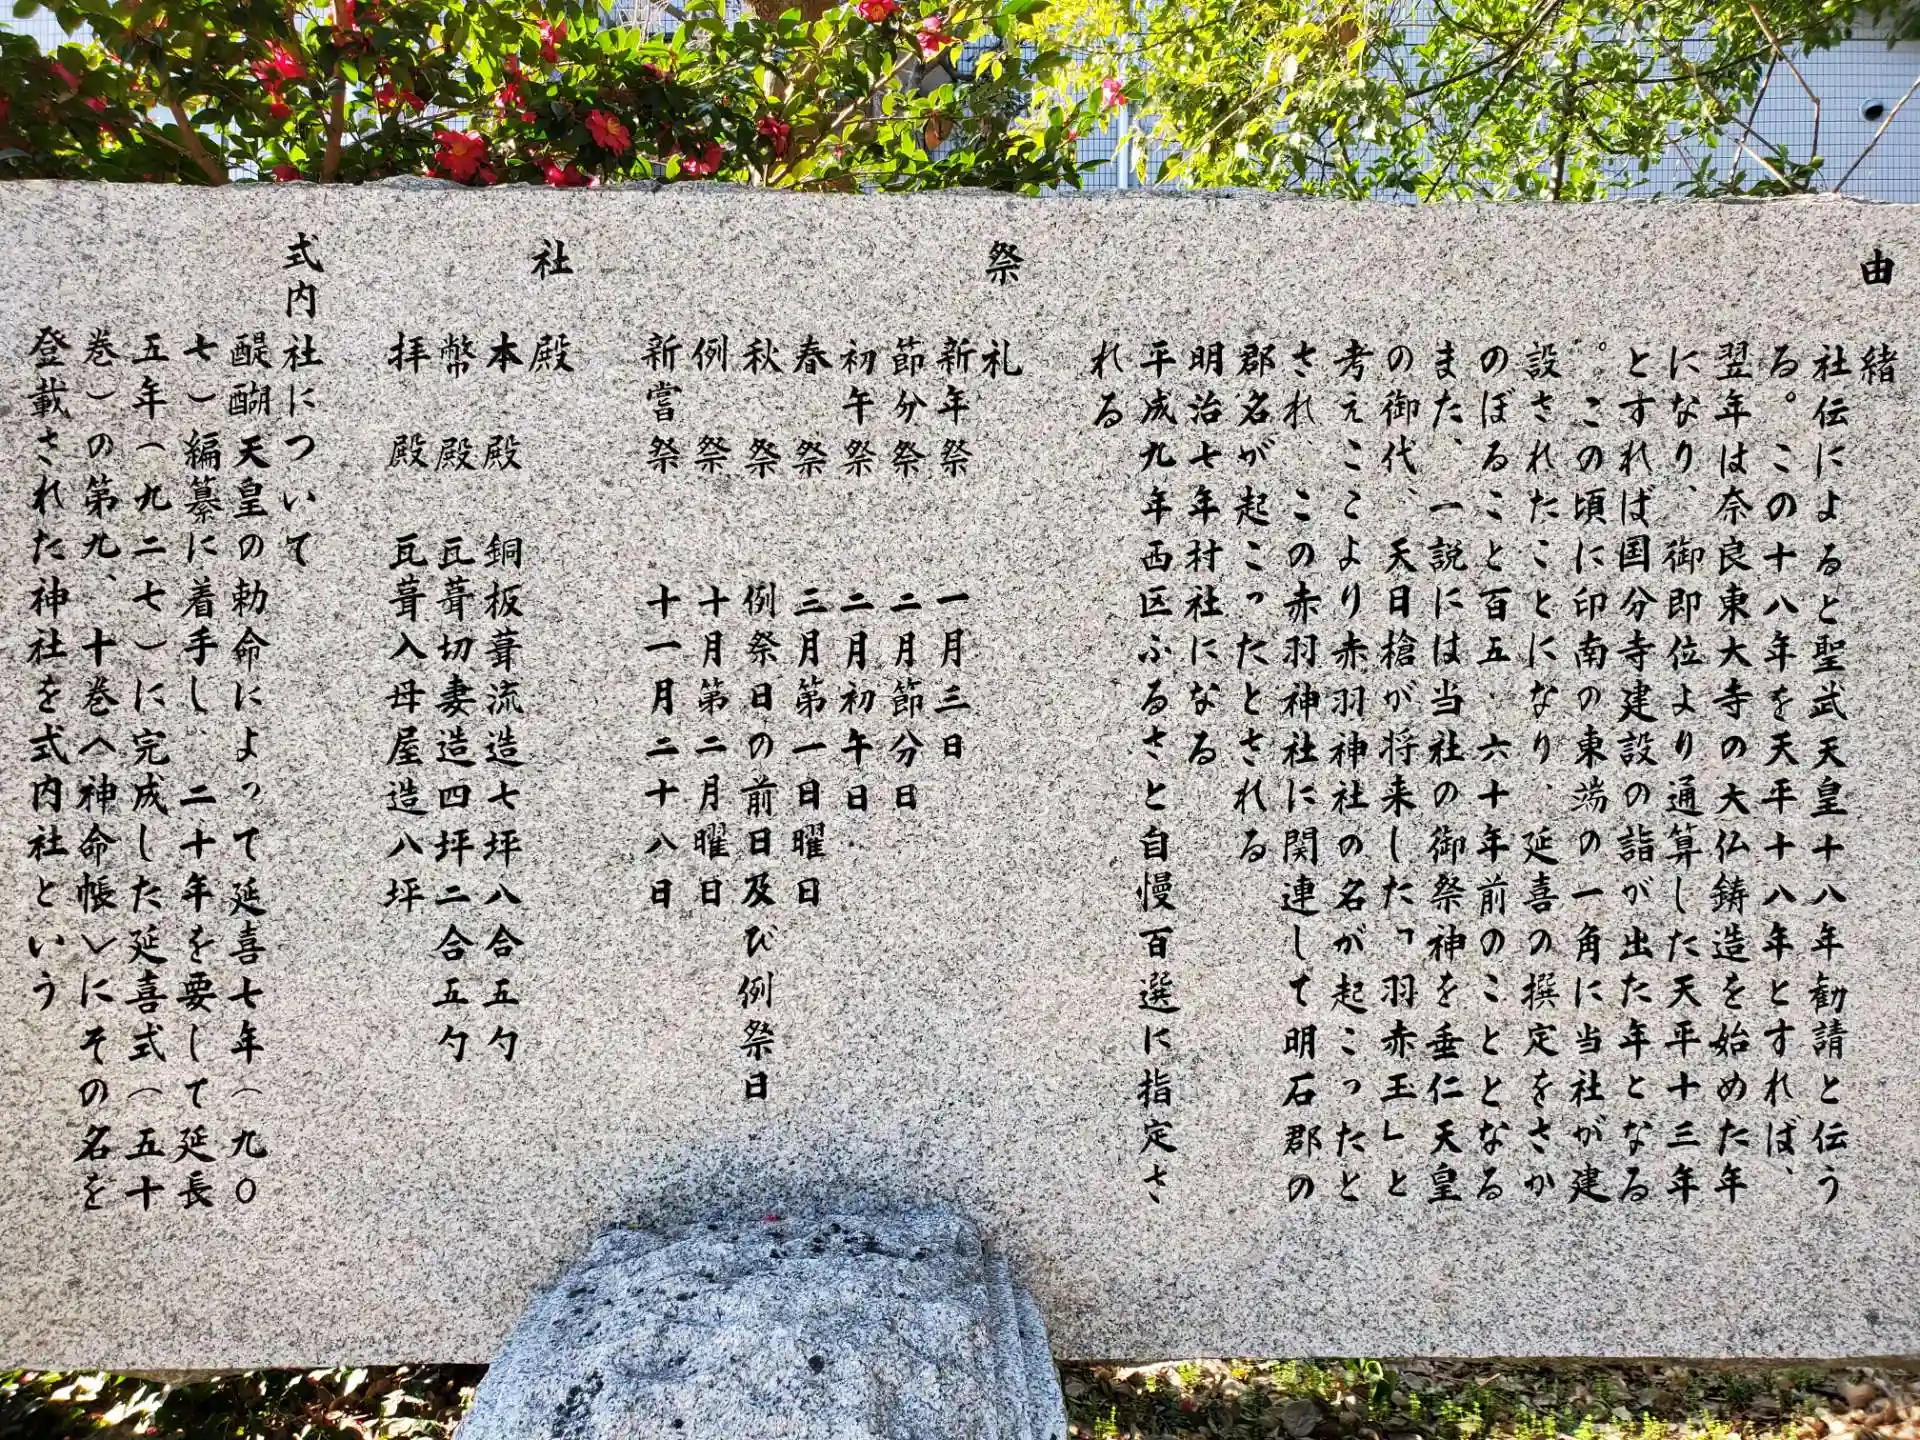 由緒
社伝によると聖武天皇十八年勧請と伝う
る。この十八年を天平十八年とすれば、
翌年は奈良東大寺の大仏鋳造を始めた年
になり、御即位より通算した天平十三年
とすれば国分寺建設の詣が出た年となる
。この頃に印南の東端の一角に当社が建
設されたことになり、延喜の撰定をさか
のぼること百五、六十年前のこととなる
また、一説には当社の御祭神を垂仁天皇
の御代、天日槍が将来した「羽赤玉」と
考えここより赤羽神社の名が起こったと
され、この赤羽神社に関連して明石郡の
郡名が起こったとされる
明治七年村社になる
平成九年西区ふるさと自慢百選に指定さ
れる
祭礼
新年祭 一月三日
節分祭 二月節分日
初午祭 二月初午日
春祭 三月第一日曜日
秋祭 例祭日の前日及び例祭日
例祭 十月第二月曜日
新嘗祭 十一月二十八日
社殿
本殿 銅板葺流造七坪八合五勺
幣殿 瓦葺切妻造四坪二合五勺
拝殿 瓦葺入母屋造八坪
式内社について
醍醐天皇の勅命によって延喜七年（九〇
七）編纂に着手し、二十年を要して延長
五年（九二七）に完成した延喜式（五十
巻）の第九、十巻＜神命帳＞にその名を
登載された神社を式内社という